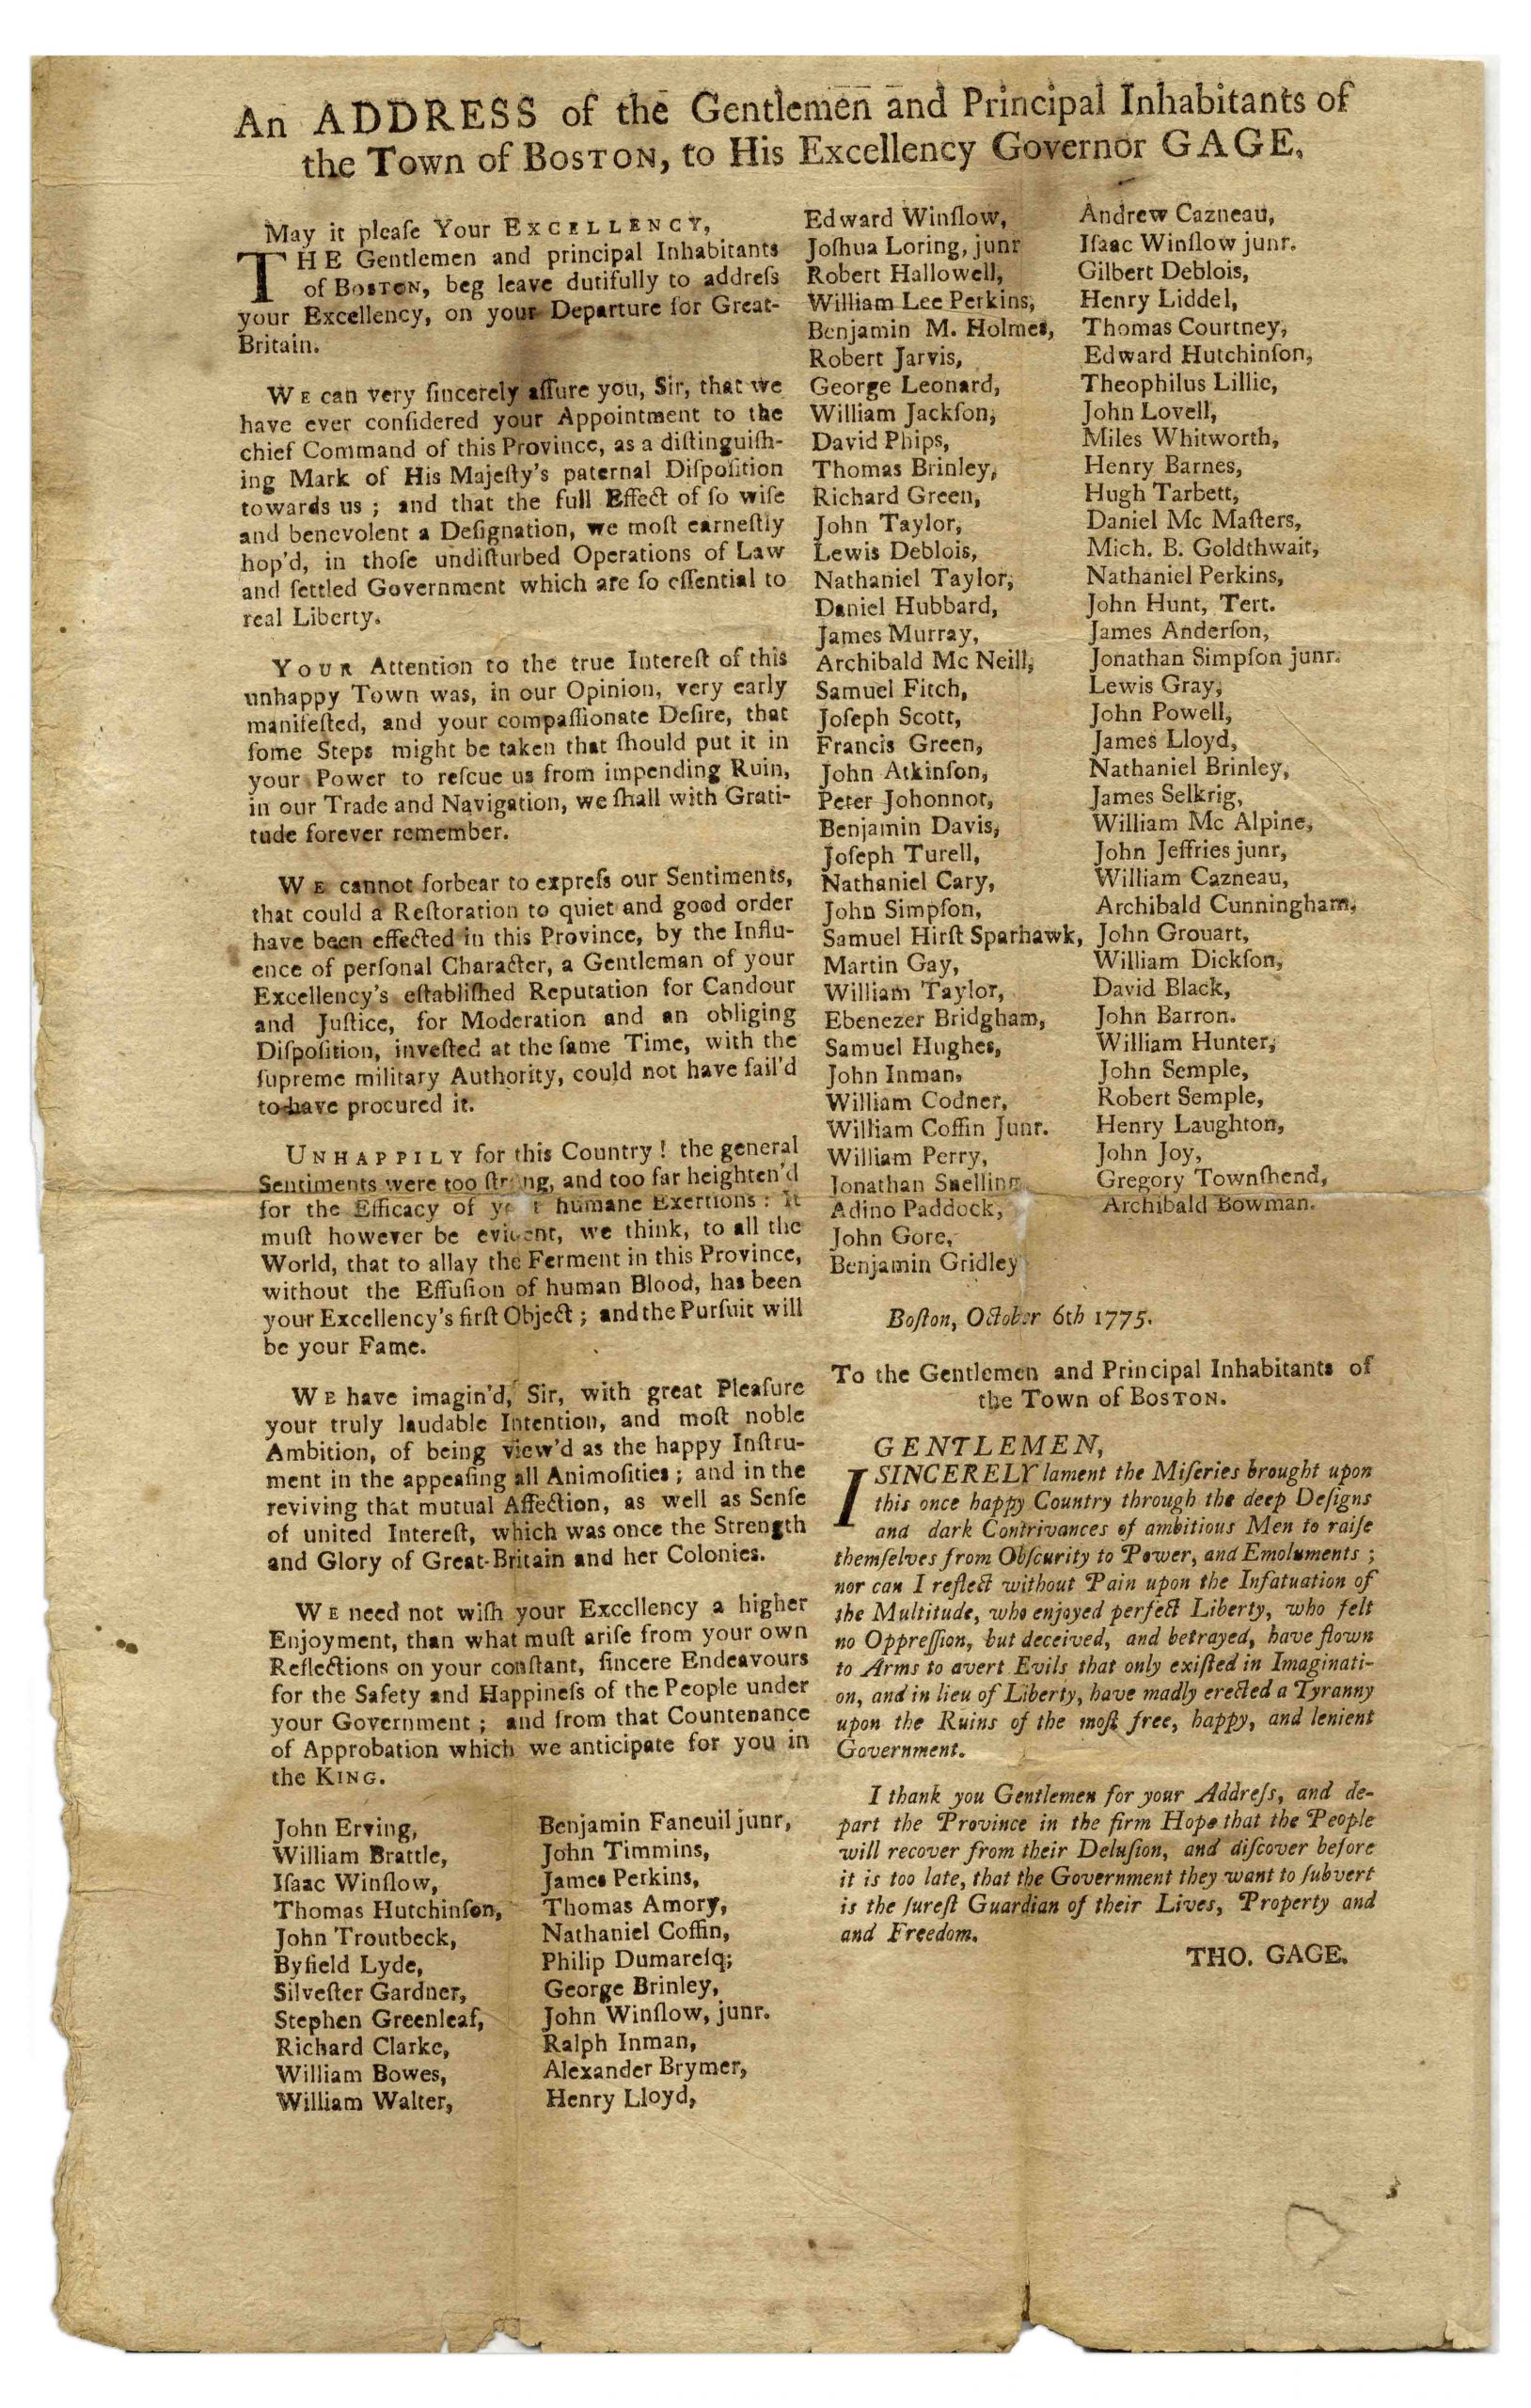 An ADDRESS of the Gentlemen and Principal Inhabitants of
the Town of BOSTON, to His Excellency Governor GAGE,
May it pleaſe Your EXCELLENCY,
THE Gentlemen and principal Inhabitants
of BOSTON, beg leave dutifully to addreſs
your Excellency, on your Departure for Great-
Britain.
WE can very ſincerely aſſure you, Sir, that we
have ever conſidered your Appointment to the
chief Command of this Province, as a diſtinguiſh-
ing Mark of His Majeſty's paternal Diſpoſition
towards us ; and that the full Effect of ſo wiſe
and benevolent a Deſignation, we moſt earneſtly
hop'd, in thoſe undiſturbed Operations of Law
and ſettled Government which are ſo eſſential to
real Liberty.
YOUR Attention to the true Intereſt of this
unhappy Town was, in our Opinion, very early
manifeſted, and your compaſſionate Deſire, that
ſome Steps might be taken that ſhould put it in
your Power to reſcue us from impending Ruin,
in our Trade and Navigation, we ſhall with Grati-
tude forever remember.
WE cannot forbear to expreſs our Sentiments,
that could a Reſtoration to quiet and good order
have been effected in this Province, by the Influ-
ence of perſonal Character, a Gentleman of your
Excellency's eſtabliſhed Reputation for Candour
and Juſtice, for Moderation and an obliging
Diſpoſition, inveſted at the ſame Time, with the
ſupreme military Authority, could not have fail'd
to have procured it.
UNHAPPILY for this Country ! the general
Sentiments were too ſtrong, and too far heighten'd
for the Efficacy of your humane Exertions : It
muſt however be evident, we think, to all the
World, that to allay the Ferment in this Province,
without the Effuſion of human Blood, has been
your Excellency's firſt Object ; and the Purſuit will
be your Fame.
WE have imagin'd, Sir, with great Pleaſure
your truly laudable Intention, and moſt noble
Ambition, of being view'd as the happy Inſtru-
ment in the appeaſing all Animoſities ; and in the
reviving that mutual Affection, as well as Senſe
of united Intereſt, which was once the Strength
and Glory of Great-Britain and her Colonies.
WE need not wiſh your Excellency a higher
Enjoyment, than what muſt ariſe from your own
Reflections on your conſtant, ſincere Endeavours
for the Safety and Happineſs of the People under
your Government ; and from that Countenance
of Approbation which we anticipate for you in
the KING.
John Erving,
William Brattle,
Iſaac Winſlow,
Thomas Hutchinſon,
John Troutbeck,
Byfield Lyde,
Silveſter Gardner,
Stephen Greenleaf,
Richard Clarke,
William Bowes,
William Walter,
Benjamin Faneuil junr,
John Timmins,
James Perkins,
Thomas Amory,
Nathaniel Coffin,
Philip Dumareſq;
George Brinley,
John Winſlow, junr.
Ralph Inman,
Alexander Brymer,
Henry Lloyd,
Edward Winſlow,
Joſhua Loring, junr
Robert Hallowell,
William Lee Perkins,
Benjamin M. Holmes,
Robert Jarvis,
George Leonard,
William Jackſon,
David Phips,
Thomas Brinley,
Richard Green,
John Taylor,
Lewis Deblois,
Nathaniel Taylor,
Daniel Hubbard,
James Murray,
Archibald Mc Neill,
Samuel Fitch,
Joſeph Scott,
Francis Green,
John Atkinſon,
Peter Johonnot,
Benjamin Davis,
Joſeph Turell,
Nathaniel Cary,
John Simpſon,
Samuel Hirſt Sparhawk,
Martin Gay,
William Taylor,
Ebenezer Bridgham,
Samuel Hughes,
John Inman,
William Codner,
William Coffin Junr.
William Perry,
Jonathan Snelling
Adino Paddock,
John Gore,
Benjamin Gridley
Andrew Cazneau,
Iſaac Winſlow junr.
Gilbert Deblois,
Henry Liddel,
Thomas Courtney,
Edward Hutchinſon,
Theophilus Lillie,
John Lovell,
Miles Whitworth,
Henry Barnes,
Hugh Tarbett,
Daniel Mc Maſters,
Mich. B. Goldthwait,
Nathaniel Perkins,
John Hunt, Tert.
James Anderſon,
Jonathan Simpſon junr.
Lewis Gray,
John Powell,
James Lloyd,
Nathaniel Brinley,
James Selkrig,
William Mc Alpine,
John Jeffries junr,
William Cazneau,
Archibald Cunningham,
John Grouart,
William Dickſon,
David Black,
John Barron.
William Hunter,
John Semple,
Robert Semple,
Henry Laughton,
John Joy,
Gregory Townſhend,
Archibald Bowman.
Boſton, October 6th 1775.
To the Gentlemen and Principal Inhabitants of
the Town of BOSTON.
GENTLEMEN,
I SINCERELY lament the Miſeries brought upon
this once happy Country through the deep Deſigns
and dark Contrivances of ambitious Men to raiſe
themſelves from Obſcurity to Power, and Emoluments ;
nor can I reflect without Pain upon the Infatuation of
the Multitude, who enjoyed perfect Liberty, who felt
no Oppreſſion, but deceived, and betrayed, have flown
to Arms to avert Evils that only exiſted in Imaginati-
on, and in lieu of Liberty, have madly erected a Tyranny
upon the Ruins of the moſt free, happy, and lenient
Government.
I thank you Gentlemen for your Addreſs, and de-
part the Province in the firm Hope that the People
will recover from their Deluſion, and diſcover before
it is too late, that the Government they want to ſubvert
is the ſureſt Guardian of their Lives, Property and
and Freedom.
THO. GAGE.